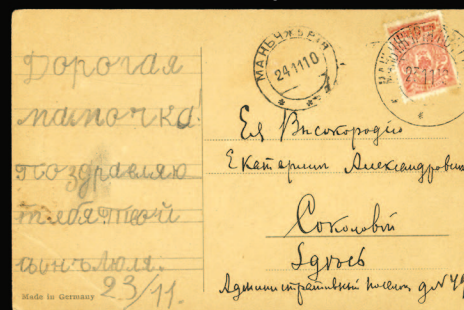 Дорогая
мамочка!
Поздравляю
тебя твой
сынъ Люля.
23/11.
Made in Germany
МАНЬЧЖУРІЯ
24 11 10
Ея Высокородію
Екатерины Александровнѣ
Соколовой
Здѣсь
Административный поселок д № 49